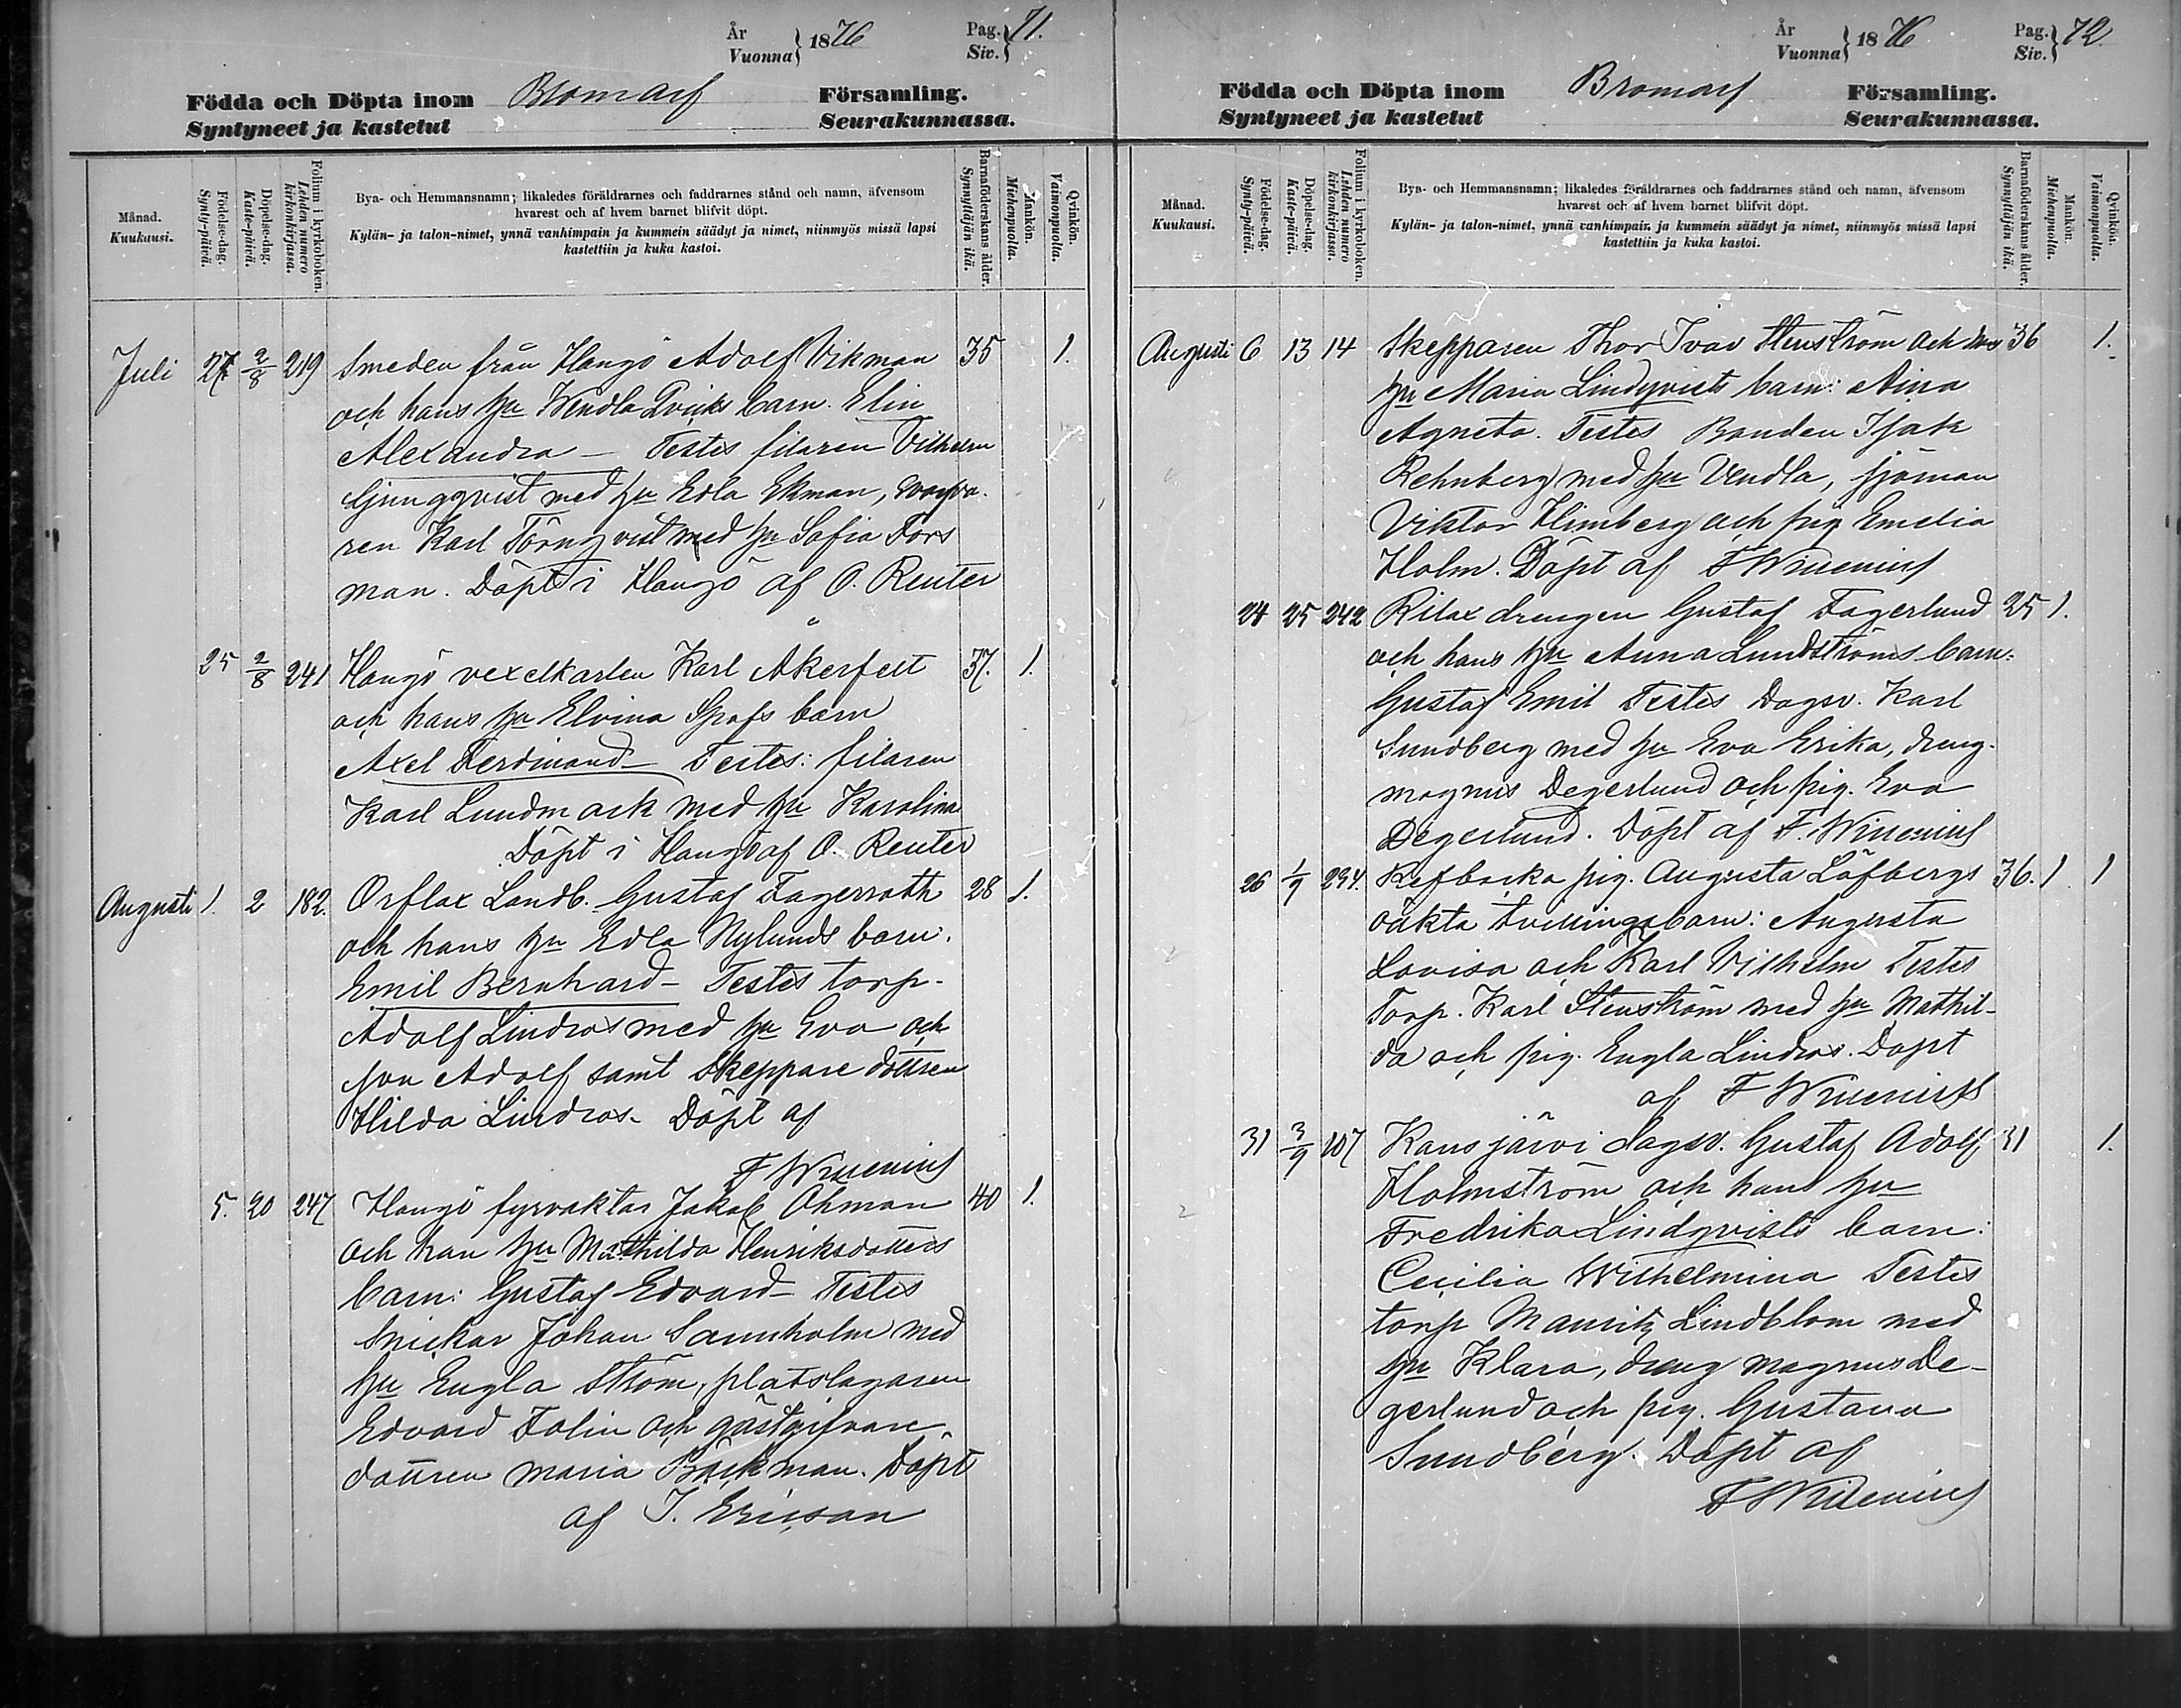 År
Vuonna } 1876
Pag.
Siv. } 71.
Födda och Döpta inom Bromarf Församling.
Syntyneet ja kastetut Seurakunnassa.
Månad.
Kuukausi.
Födelse-dag.
Synty-päivä.
Döpelse-dag.
Kaste-päivä.
Folium i kyrkoboken.
Lehden numero kirkonkirjassa.
Bya- och Hemmansnamn; likaledes föräldrarnes och faddrarnes stånd och namn, äfvensom
hvarest och af hvem barnet blifvit döpt.
Kylän- ja talon-nimet, ynnä vanhimpain ja kummein säädyt ja nimet, niinmyös missä lapsi
kastettiin ja kuka kastoi.
Barnaföderskans ålder.
Synnyttäjän ikä.
Mankön.
Miehenpuolta.
Qvinkön.
Vaimonpuolta.
Juli 27 2/8 219 Smeden från Hangö Adolf Vikman 35 1.
och hans hu Wendla Qvicks barn. Elin
Alexandra – Testes filaren Vilhelm
Ljungqvist med hu Edla Ekman,
ren Karl Törnqvist med hu Sofia Fors
man. Döpt i Hangö af O. Reuter
25 2/8 241 Hangö vexelkarlen Karl Åkerfelt 37. 1.
och hans hu Elvina Grafs barn
Axel Ferdinand – Testes: filaren
Karl Lundmark med hu Karolina
Döpt i Hangö af O. Reuter
Augusti 1. 2 182. Orflax Landb. Gustaf Fagerroth 28 1.
och hans hu Edla Nylunds barn.
Emil Bernhard – Testes torp.
Adolf Lindros med hu Eva och
son Adolf samt Skeppare dottren
Hilda Lindros. Döpt af
F Winenius
5. 20 247 Hangö fyrvaktar Jakob Öhman 40 1.
och han hu Mathilda Henriksdotters
barn: Gustaf Edvard – Testes
Snickar Johan Sannholm med
hu Engla Ström, platslagaren
Edvard Folin och gästgifvare
dottren Maria Bäckman. Döpt
af J. Ericson
År
Vuonna } 1876
Pag.
Siv. } 72.
Födda och Döpta inom Bromarf Församling.
Syntyneet ja kastetut Seurakunnassa.
Månad.
Kuukausi.
Födelse-dag.
Synty-päivä.
Döpelse-dag.
Kaste-päivä.
Folium i kyrkoboken.
Lehden numero kirkonkirjassa.
Bya- och Hemmansnamn; likaledes föräldrarnes och faddrarnes stånd och namn, äfvensom
hvarest och af hvem barnet blifvit döpt.
Kylän- ja talon-nimet, ynnä vanhimpain ja kummein säädyt ja nimet, niinmyös missä lapsi
kastettiin ja kuka kastoi.
Barnaföderskans ålder.
Synnyttäjän ikä.
Mankön.
Miehenpuolta.
Qvinkön.
Vaimonpuolta.
Augusti 6 13 14 Skepparen Thor Ivar Stenström och hans 36 1.
hu Maria Lindqvists barn: Aina
Agneta. Testes Bonden Isak
Rehnberg med hu Vendla, sjöman
Viktor Himberg och pig Emelia
Holm. Döpt af F Winenius
24 25 242 Rilax drengen Gustaf Fagerlund 25 1.
och hans hu Anna Lundströms barn:
Gustaf Emil Testes Dagsv. Karl
Sundberg med hu Eva Erika, dreng.
magnus Degerlund och pig. Eva
Degerlund. Döpt af F. Winenius
26 1/9 234. Refbacka pig. Augusta Löfbergs 36. 1 1
oäkta tvillingabarn: Augusta
Lovisa och Karl Vilhelm Testes
Torp. Karl Stenström med hu Mathil-
da och pig. Engla Lindros. Döpt
af F Winenius
31 3/9 107 Kansjärvi dagsv. Gustaf Adolf 31 1.
Holmström och hans hu
Fredrika Lindqvists barn:
Cecilia Wilhelmina Testes
torp Mauritz Lindblom med
hu Klara, dreng magnus De-
gerlund och pig. Gustava
Sundberg. Döpt af
F Winenius